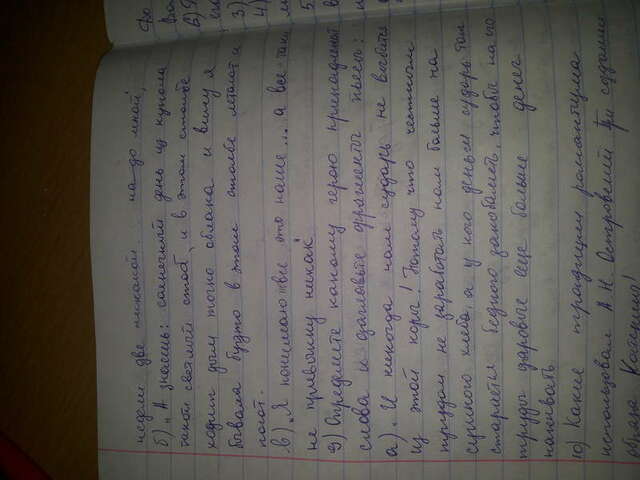 недели две никакой надо мной,
б) „А знаешь: солнечный день из купола
такой светлый столб, и в этом столбе
ходит дым точно облака и вижу я
бывало будто в этом столбе летают и
поют.
в) „Я понимаю все это наше... а все таки
не привыкну никак
9) Определите какому герою принадлежат
слова и озаглавьте фрагменты пьесы:
а) „И никогда нам сударь не выбиться
из этой коры! Потому что честным
трудом не заработать нам больше на
сущного хлеба а у кого деньги сударь тот
старается бедного закабалить, чтобы на его
труды даровые еще больше денег
наживать
10) Какие традиции романтизма
использовал А.Н. Островский при создании
образа Катерины!
Фо
3)
4)
5.